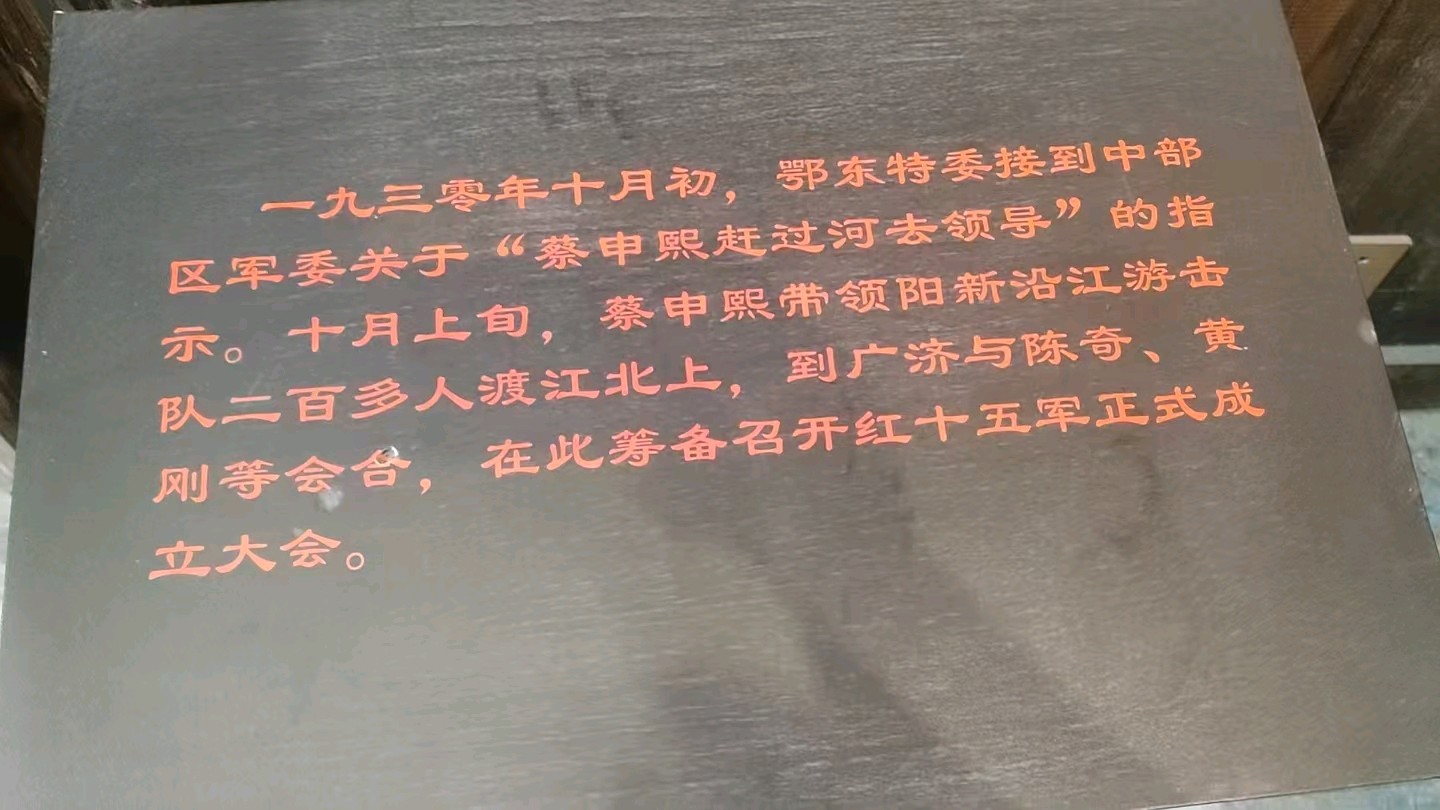 一九三零年十月初，鄂东特委接到中部
区军委关于“蔡申熙赶过河去领导”的指
示。十月上旬，蔡申熙带领阳新沿江游击
队二百多人渡江北上，到广济与陈奇、黄
刚等会合，在此筹备召开红十五军正式成
立大会。